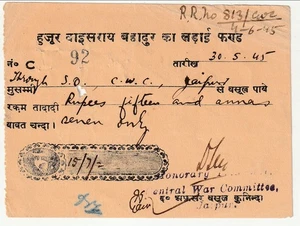 R.R.no 813/cwc
4-6-45
हुजूर वाइसराय बहादुर का लड़ाई फण्ड
नं० C 92 तारीख 30.5.45
Through S.D. C.W.C., Jaipur
मुसम्मी से वसूल पाये
रक़म तादादी Rupees fifteen and annas
बाबत चन्दा। seven only
15/7/-
Honorary
Central War Committee,
Jaipur.
द० अफ़सर वसूल कुनिन्दा